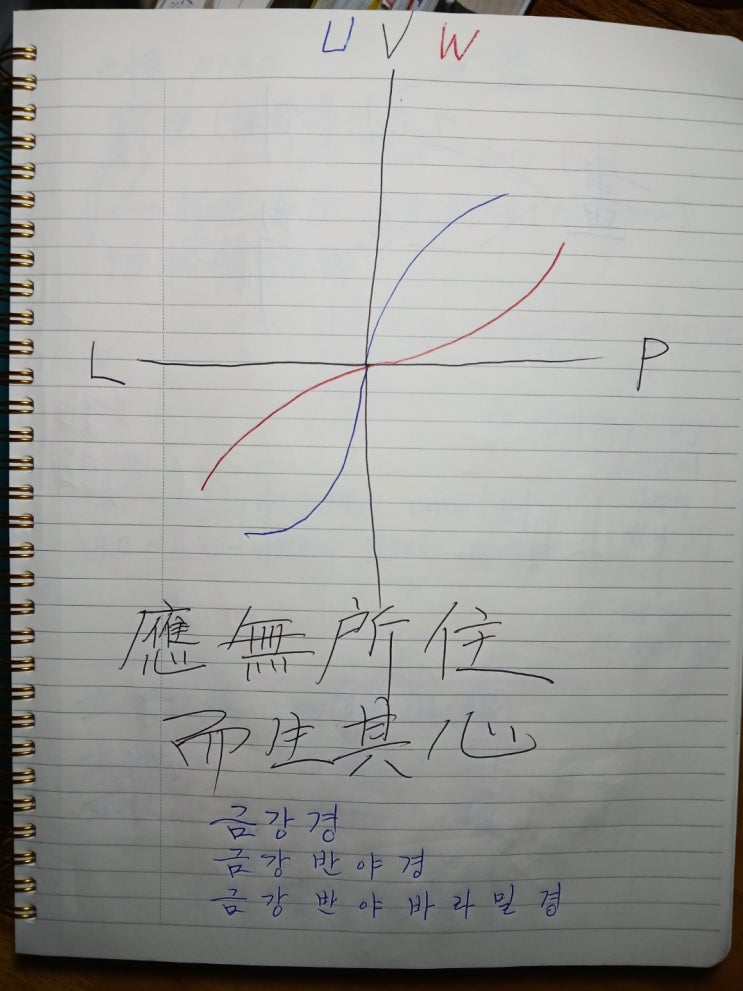 U V W
L P
應無所住
而生其心
금강경
금강반야경
금강반야바라밀경